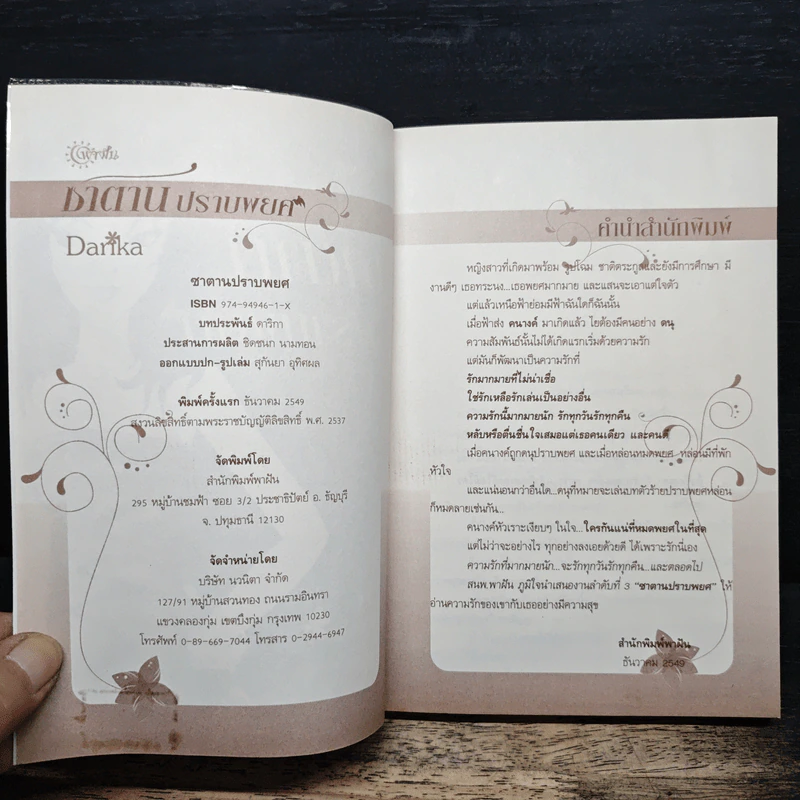 พาฝัน
ซาตานปราบพยศ
Darika
ซาตานปราบพยศ
ISBN 974-94946-1-X
บทประพันธ์ ดาริกา
ประสานการผลิต ชิดชนก นามทอน
ออกแบบปก-รูปเล่ม สุกันยา อุทิศผล
พิมพ์ครั้งแรก ธันวาคม 2549
สงวนลิขสิทธิ์ตามพระราชบัญญัติลิขสิทธิ์ พ.ศ. 2537
จัดพิมพ์โดย
สำนักพิมพ์พาฝัน
295 หมู่บ้านชมฟ้า ซอย 3/2 ประชาธิปัตย์ อ. ธัญบุรี
จ. ปทุมธานี 12130
จัดจำหน่ายโดย
บริษัท นวนิตา จำกัด
127/91 หมู่บ้านสวนทอง ถนนรามอินทรา
แขวงคลองกุ่ม เขตบึงกุ่ม กรุงเทพ 10230
โทรศัพท์ 0-89-669-7044 โทรสาร 0-2944-6947
คำนำสำนักพิมพ์
หญิงสาวที่เกิดมาพร้อม รูปโฉม ชาติตระกูลและยังมีการศึกษา มี
งานดีๆ เธอทระนง...เธอพยศมากมาย และแสนจะเอาแต่ใจตัว
แต่แล้วเหนือฟ้าย่อมมีฟ้าฉันใดก็ฉันนั้น
เมื่อฟ้าส่ง คนางค์ มาเกิดแล้ว ไยต้องมีคนอย่าง ดนุ
ความสัมพันธ์นั้นไม่ได้เกิดแรกเริ่มด้วยความรัก
แต่มันก็พัฒนาเป็นความรักที่
รักมากมายที่ไม่น่าเชื่อ
ใช่รักเหลือรักเล่นเป็นอย่างอื่น
ความรักนี้มากมายนัก รักทุกวันรักทุกคืน
หลับหรือตื่นชื่นใจเสมอแต่เธอคนเดียว และคนดี
เมื่อคนางค์ถูกดนุปราบพยศ และเมื่อหล่อนหมดพยศ หล่อนมีที่พัก
หัวใจ
และแน่นอนกว่าอื่นใด...ดนุที่หมายจะเล่นบทตัวร้ายปราบพยศหล่อน
ก็หมดลายเช่นกัน...
คนางค์หัวเราะเงียบๆ ในใจ...ใครกันแน่ที่หมดพยศในที่สุด
แต่ไม่ว่าจะอย่างไร ทุกอย่างลงเอยด้วยดี ได้เพราะรักนี่เอง
ความรักที่มากมายนัก...จะรักทุกวันรักทุกคืน...และตลอดไป
สนพ.พาฝัน ภูมิใจนำเสนองานลำดับที่ 3 “ซาตานปราบพยศ” ให้
อ่านความรักของเขากับเธออย่างมีความสุข
สำนักพิมพ์พาฝัน
ธันวาคม 2549